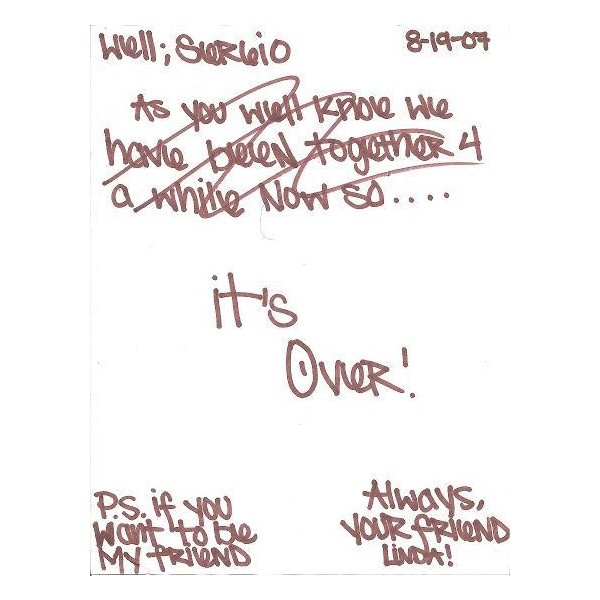 Well; Sergio 8-19-07
As you well know we
have been together 4
a while now so....
it's
Over!
P.S. if you
want to be
my friend
Always,
your friend
Linda!